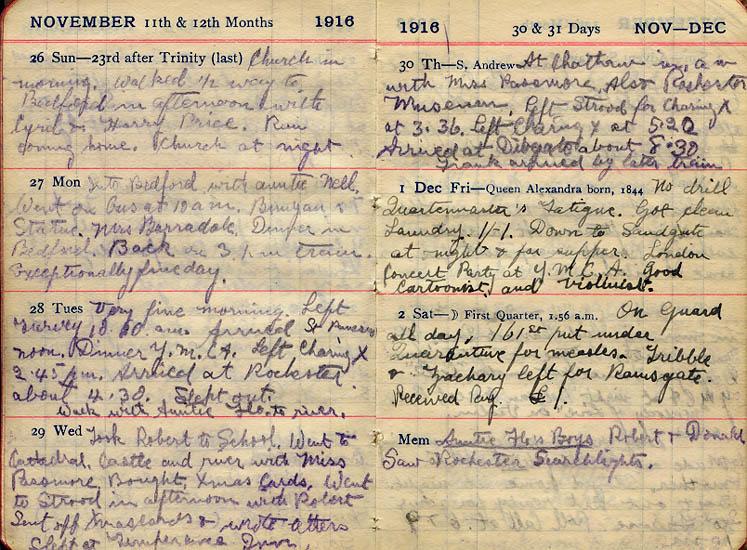 NOVEMBER 11th & 12th Months 1916
26 Sun—23rd after Trinity (last) Church in
morning. Walked 1/2 way to
Bedford in afternoon with
Cyril & Harry Price. Rain
coming home. Church at night
27 Mon Into Bedford with auntie Nell.
Went on Bus at 10 am. Bunyan's
Statue. Mrs Barradale. Dinner in
Bedford. Back on 3 pm train.
Exceptionally fine day.
28 Tues Very fine morning. Left
10.50 am arrived St Pancras
noon. Dinner Y.M.C.A. Left Charing X
2.45 pm. Arrived at Rochester
about 4.30. Slept out.
Walk with Auntie Flo to river.
29 Wed Took Robert to School. Went to
Cathedral, Castle and river with Miss
Passmore Bought Xmas Cards. Went
to Strood in afternoon with Robert
Sent off & wrote letters
Slept at Temperance Inn.
1916 30 & 31 Days NOV—DEC
30 Th—S. Andrew At Chatham in a m
with Miss Passmore, Also Rochester
Museum. Left Strood for Charing X
at 3.36. Left Charing X at 5.20
Arrived at about 8.30
Frank arrived by later train
1 Dec Fri—Queen Alexandra born, 1844 No drill
Quartermaster's Fatigue. Got clean
Laundry. 1/-1. Down to Sandgate
at night & for supper. London
Concert Party at Y.M.C.A. Good
Cartoonist, and Violinist.
2 Sat—☽ First Quarter, 1.56 a.m. On Guard
all day, 161st put under
Quarantine for measles. Tribble
& Zachary left for Ramsgate.
Received £1.
Mem Auntie Floss Boys Robert & Donald
Saw Rochester Searchlights.